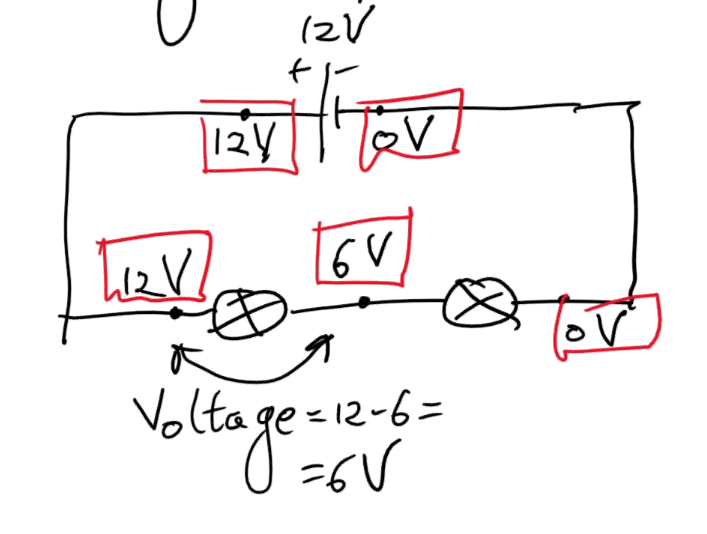 12V
+ -
12V
0V
12V
6V
0V
Voltage = 12-6=
=6V